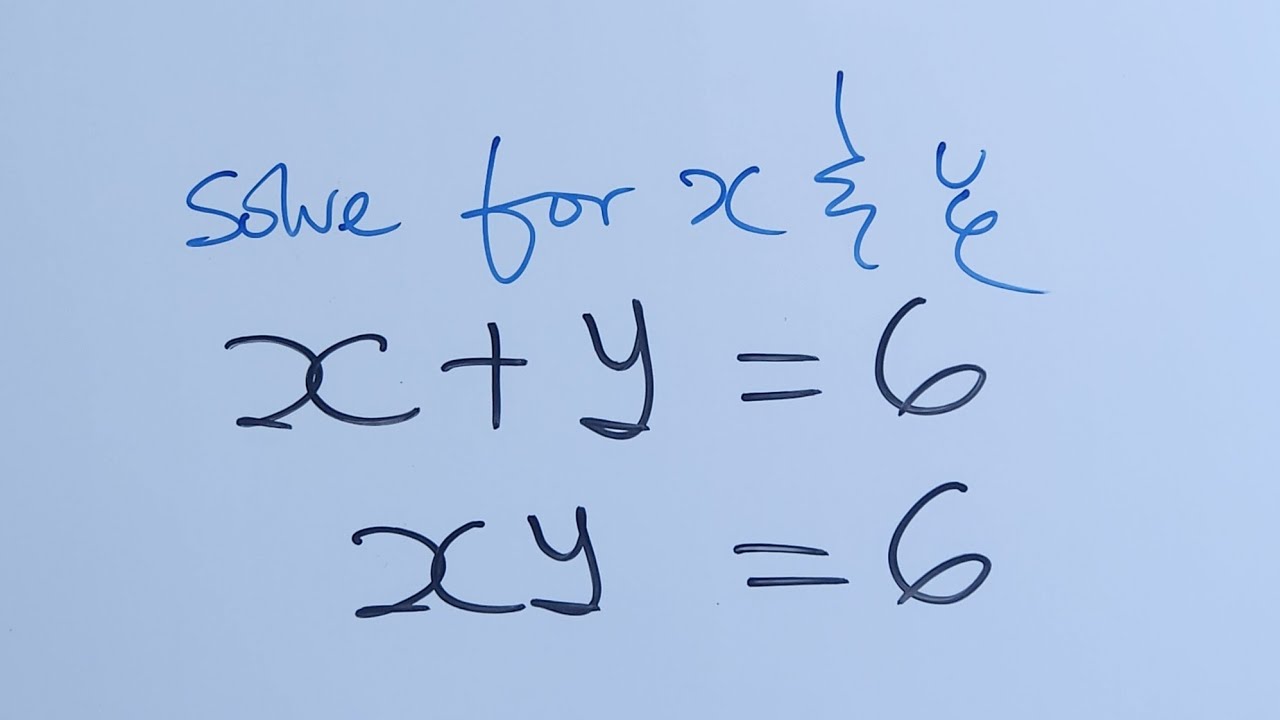 solve for x & y
x + y = 6
xy = 6